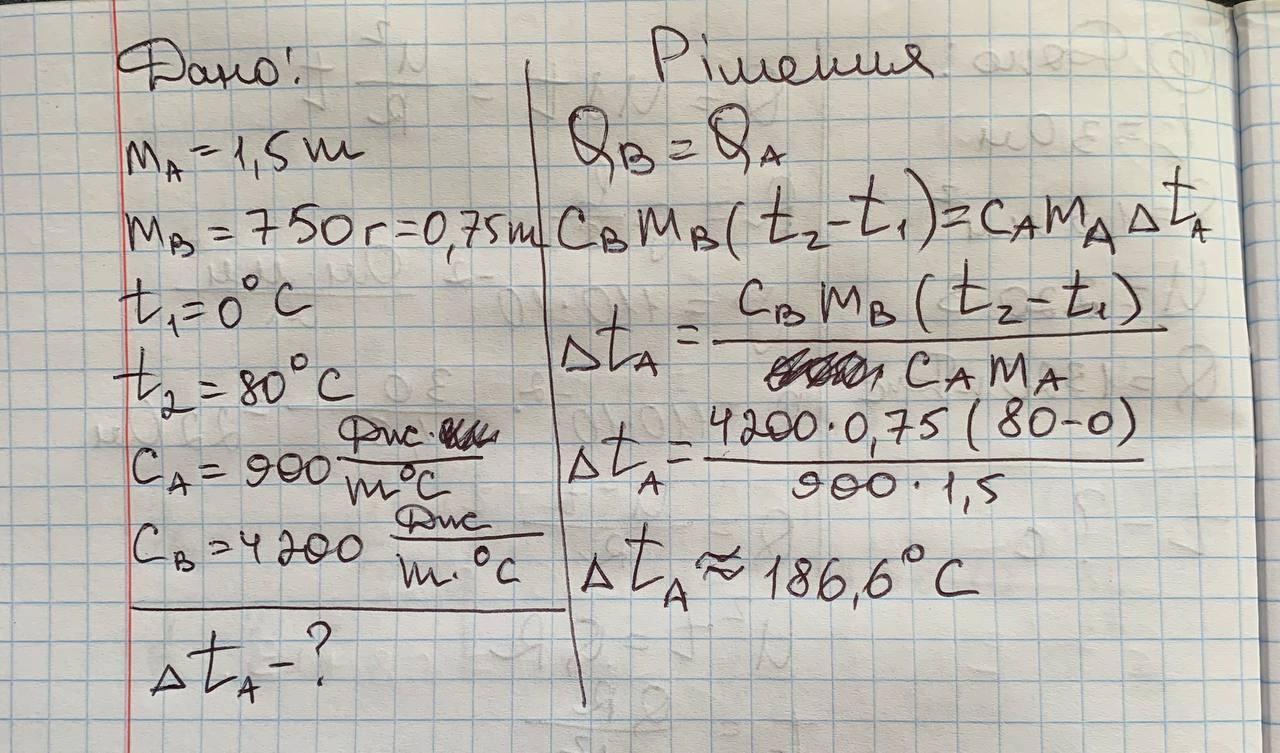 Дано:
m_A = 1,5 m
m_B = 750 г = 0,75 m
t_1 = 0°C
t_2 = 80°C
C_A = 900 Дж / m°C
C_B = 4200 Дж / m·°C
Δt_A - ?
Рішення
Q_B = Q_A
C_B m_B (t_2 - t_1) = C_A m_A Δt_A
Δt_A = C_B m_B (t_2 - t_1) / C_A m_A
Δt_A = 4200·0,75 (80-0) / 900·1,5
Δt_A ≈ 186,6°C